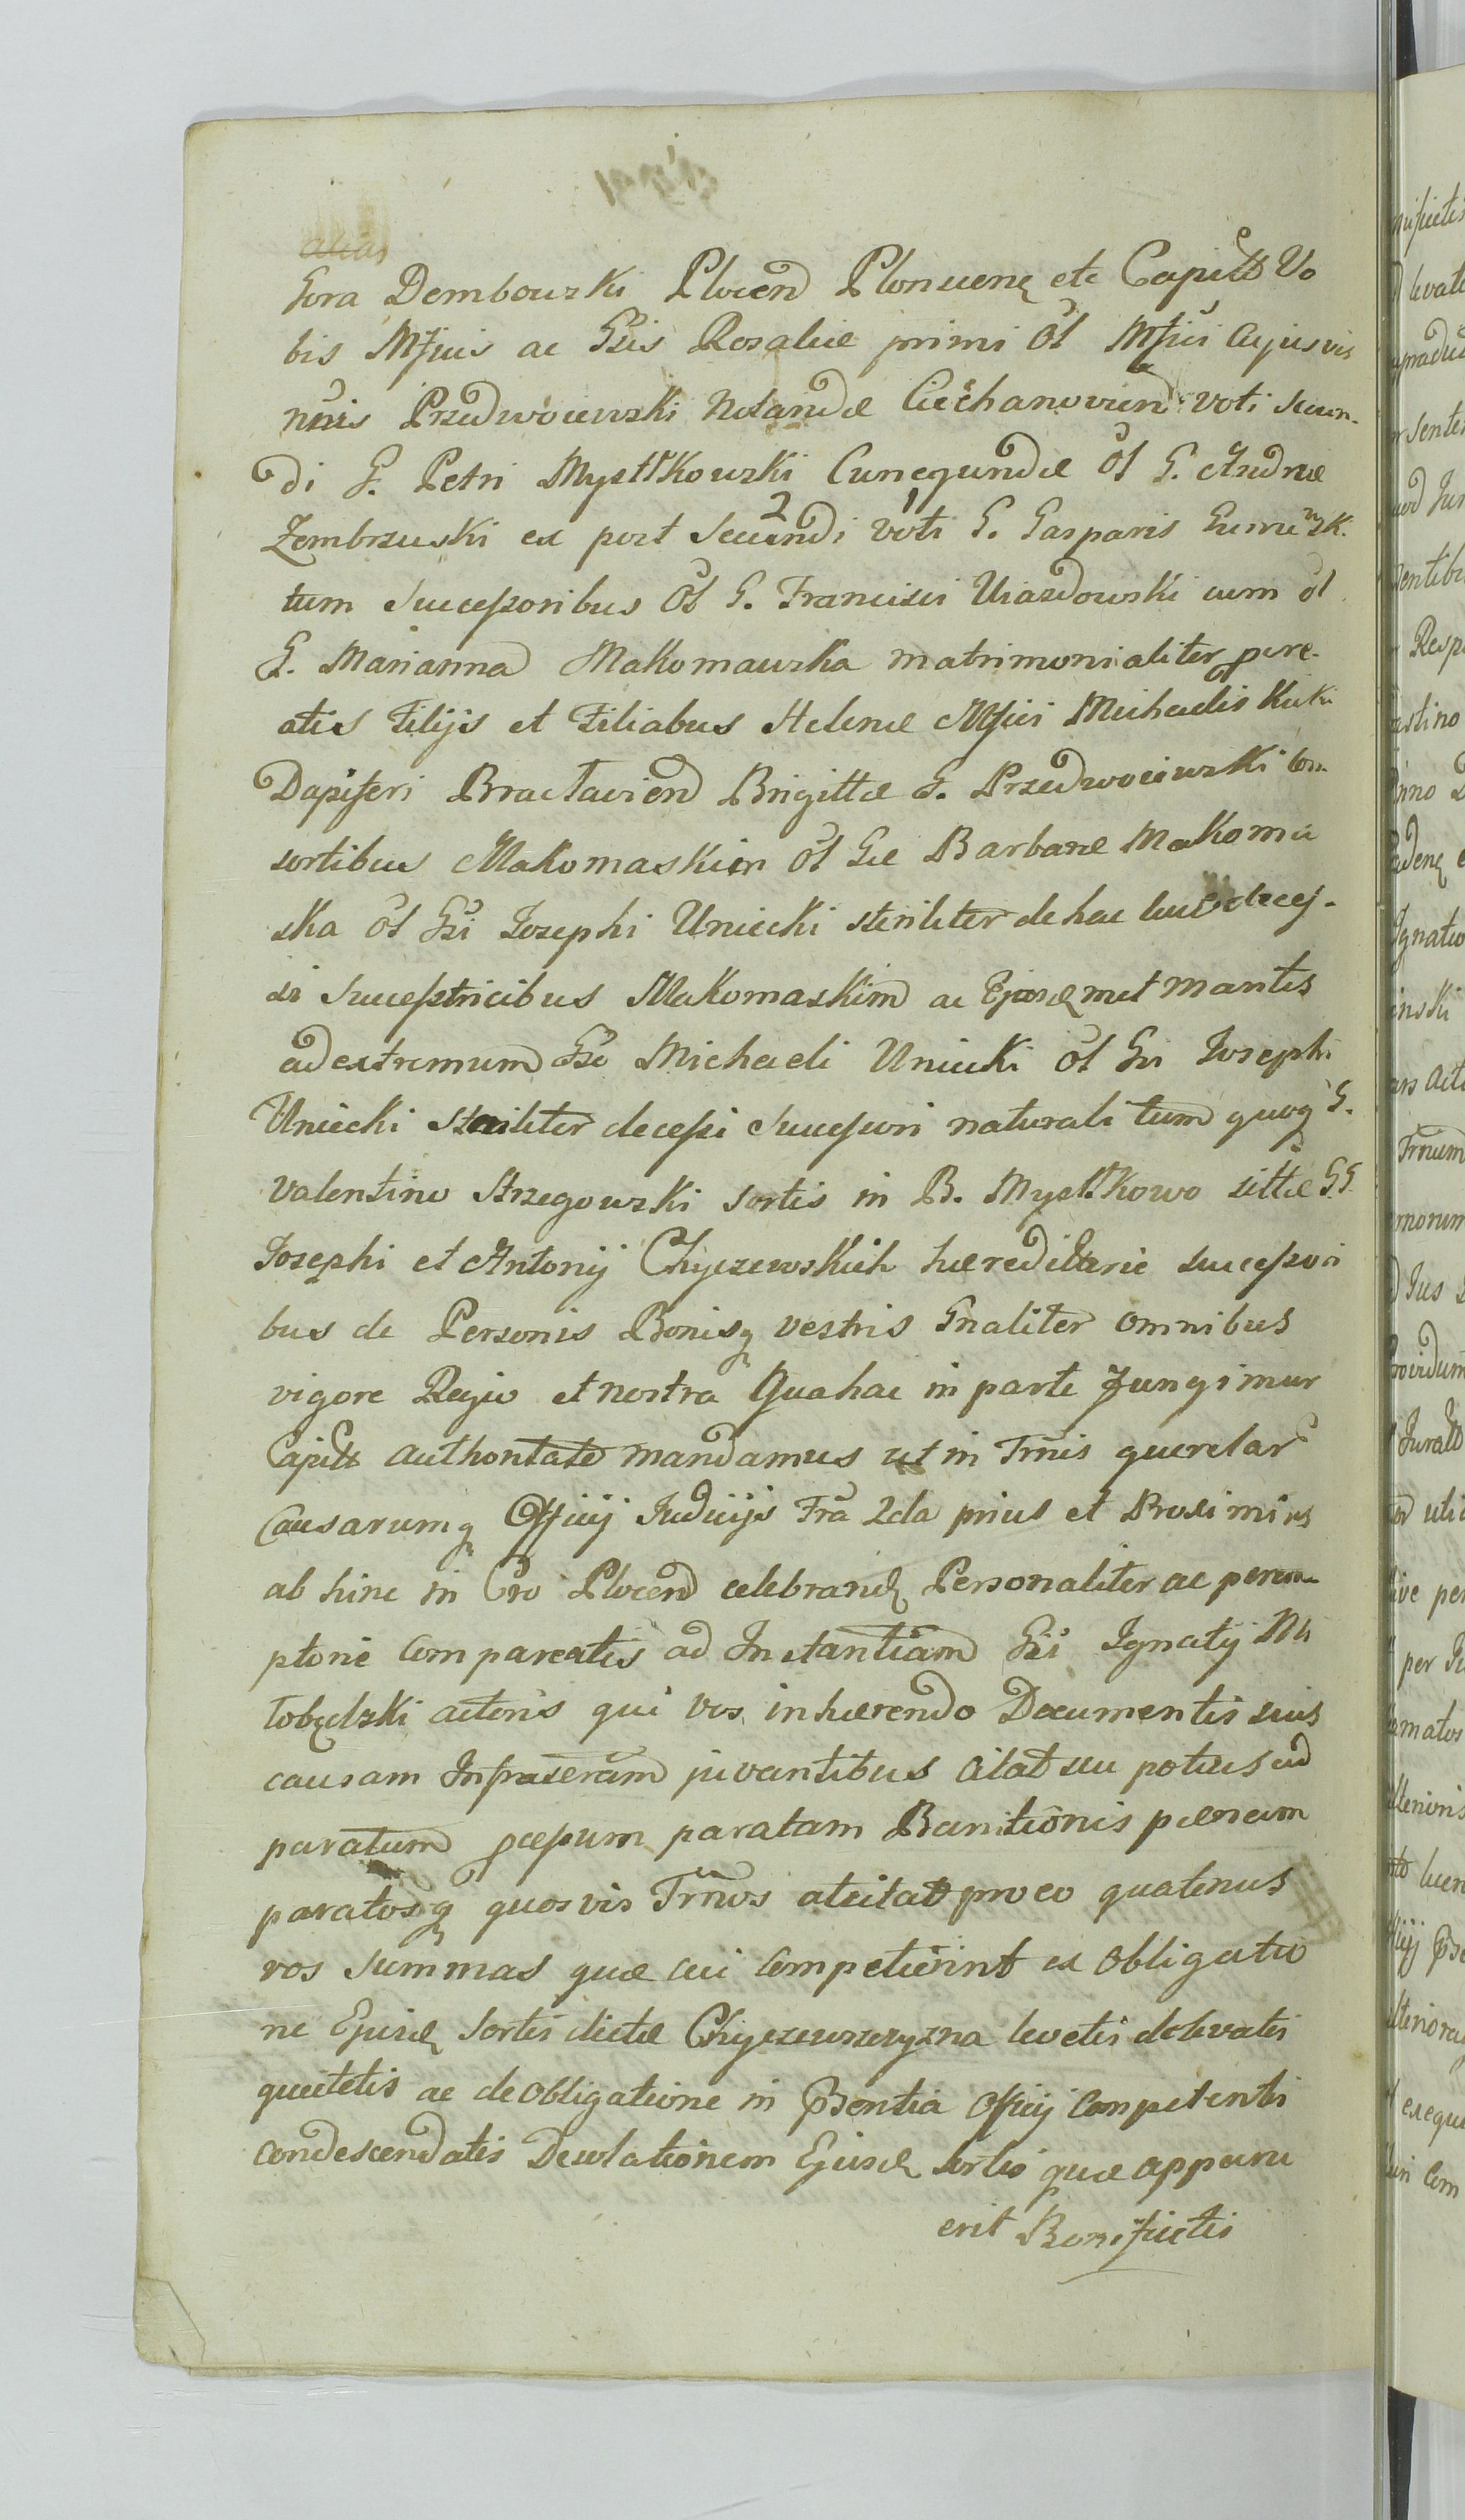 alias
Gora Dembowski Plocen Plonscenq etc Capitt Vo
bis Mfcis ac Gsis Rosaliæ primi Ol Mfici Cujusvis
nnis Przedwoiewski Notandæ Ciechanovien voti secun-
di G. Petri Mystkowski Cunegundæ Ol G. Andreæ
Zembrzuski ex post Secundi voti G. Gasparis
tum Successoribus Ol G. Francisci Uiazdowski cum ol
G. Marianna Makomawska matrimonialiter pcre-
atis Filijs et Filiabus Helenæ Mfici Michaelis Kicki
Dapiferi Bractavien Brigittæ G. Przedwoiewski Con-
sortibus Makomaskim Ol Gæ Barbaræ Makoma
ska Ol Gsi Josephi Uniecki steriliter de hac luce deces-
si Successtricibus Makomaskim ac Ejusdmet Maritis
ad extremum Gso Michaeli Uniecki Ol Gsi Josephi
Uniecki steriliter decessi Successori naturali tum quoq G.
Valentino Strzegowski sortis in B. Mystkowo sittæ GG
Josephi et Antonij Chyczewskich hæreditarie successori
bus de Personis Bonisq vestris Gnaliter omnibus
vigore Regio et nostra Qua hac in parte Jungimur
Capitt authoritate mandamus ut in Trnis querelar
Causarumq Officij Judicijs Fra 2da prius et Proximius
ab hinc in Cro Plocen celebrand Personaliter ac perem-
ptorie Compareatis ad Instantiam Gsi Ignatij Ni
tobędzki actoris qui vos inhærendo Documentis suis
causam Infrascram juvantibus Citat seu potius ad
paratum pcessum paratam Banitionis pænam
paratosq quosvis Trnos atcitat pro eo quatenus
vos summas quæ cui Competierint ex obligatio
ne Ejusd Sortis dictæ Chyczewszczyzna levetis delevatis
quietetis ac de obligatione in Psentia Officij Competenti
condescendatis Desolationem Ejusd sortis quæ apparu
erit Bonificetis